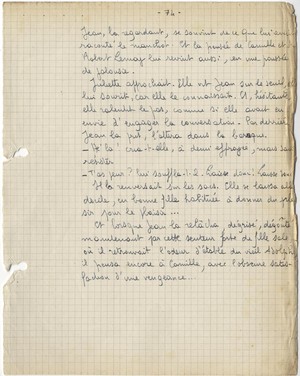 - 74 -
Jean, la regardant, se souvint de ce que lui avait
raconté le manchot. Et la pensée de Camille et d'
Albert Lernay lui revint aussi, en une poussée
de jalousie.
Juliette approchait. Elle vit Jean sur le seuil,
lui sourit, car elle le connaissait. Et, hésitant,
elle ralentit le pas, comme si elle avait eu
envie d'engager la conversation. Par derrière
Jean la prit, l'attira dans la baraque.
- Ah là ! cria-t-elle, à demi effrayée, mais sans
résister
- T'as peur ? lui souffla-t-il. Laisse donc ! Laisse donc
Il la renversait sur les sacs. Elle se laissa
docile, en bonne fille habituée à donner du plai
sir pour le plaisir ...
Et lorsque Jean la relâcha dégrisé, dégoûté
maintenant par cette senteur forte de fille sale
où il retrouvait l'odeur d'étable du vieil
il pensa encore à Camille, avec l'obscure satis-
faction d'une vengeance...